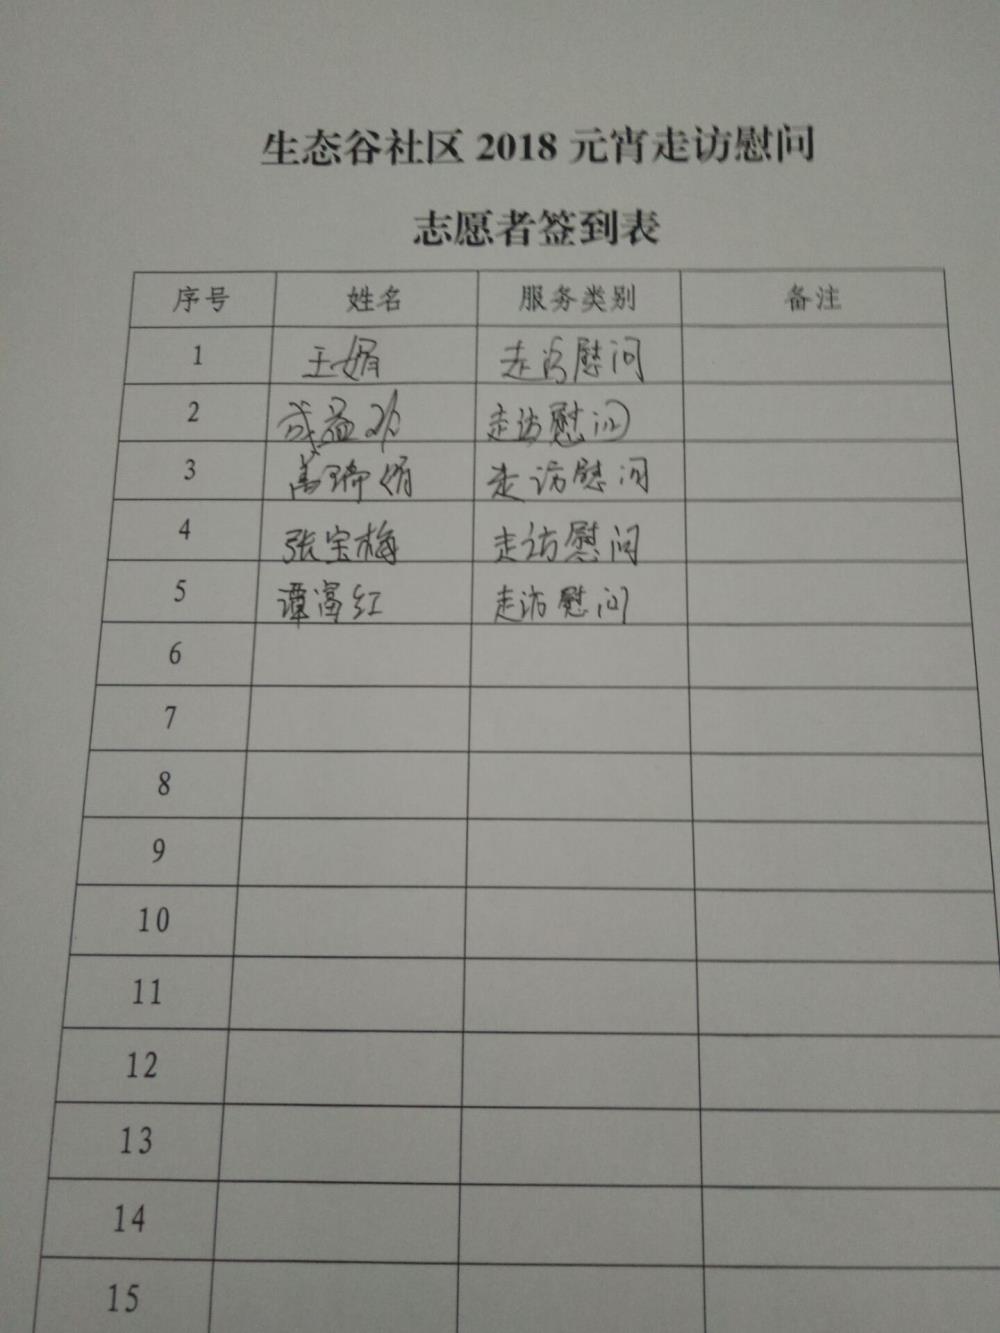 生态谷社区 2018 元宵走访慰问
志愿者签到表
序号 姓名 服务类别 备注
1 王娟 走访慰问
2 成益 走访慰问
3 瑞娟 走访慰问
4 张宝梅 走访慰问
5 谭富红 走访慰问
6
7
8
9
10
11
12
13
14
15